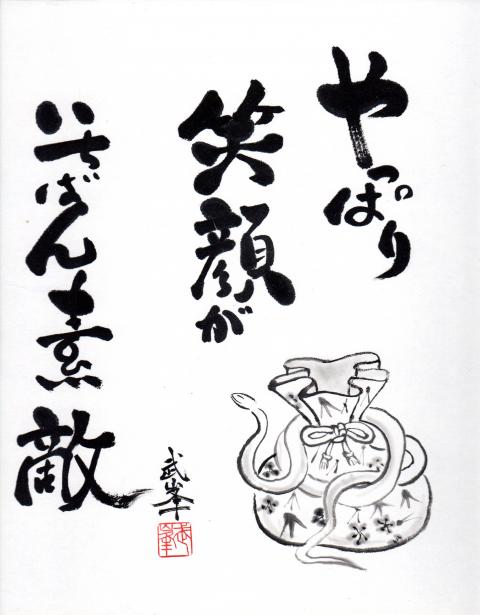 やっぱり
笑顔が
いちばん素敵
武峯